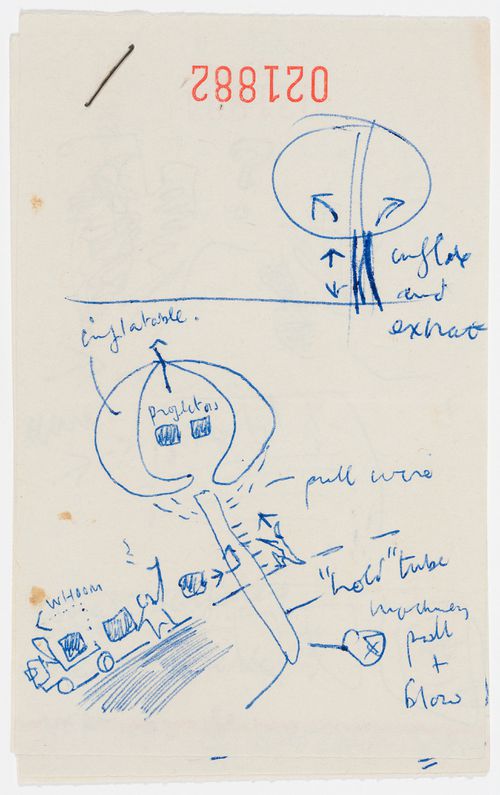 021882
inflate
and
extract
inflatable.
projectors
pull wire
"hold" tube
machinery
pull
+
blow
WHOOM